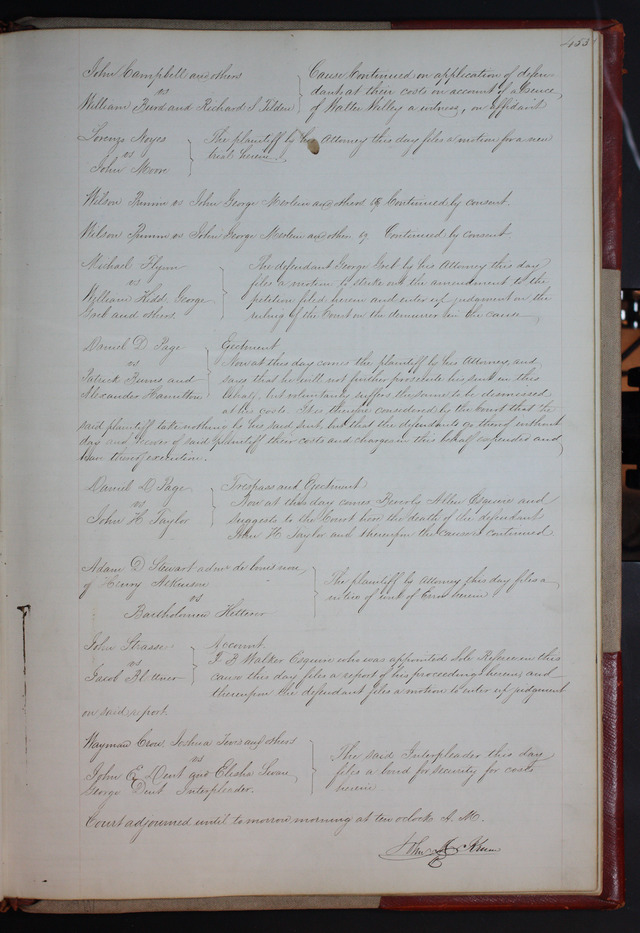 455
John Campbell and others
vs
William Bird and Richard S. Tilden
Cause Continued on application of defen-
dants at their costs on account of absence
of Walter Willey a witness, on affidavit
Lorenzo Noyes
vs
John Moore
The plaintiff by his Attorney this day files a motion for a new
trial herein.
Wilson Primm vs John George and others 68 Continued by consent.
Wilson Primm vs John George and others 69 Continued by consent
Michael Flynn
vs
William Kidd, George
and others.
The defendant George by his Attorney this day
files a motion to strike out the amendment to the
petition filed herein and enter up judgment on the
ruling of the Court on the demurrer in the cause
Daniel D. Page
vs
Patrick Burns and
Alexander Hamilton
Ejectment
Now at this day comes the plaintiff by his Attorney, and
says that he will not further prosecute his suit in this
behalf, but voluntarily suffers the same to be dismissed
at his costs. It is therefore considered by the Court that the
said plaintiff take nothing by his said suit, but that the defendants go thereof without
day and recover of said plaintiff their costs and charges in this behalf expended and
have thereof execution.
Daniel D. Page
vs
John H. Taylor
Trespass and Ejectment
Now at this day comes Beverly Allen Esquire and
suggests to the Court here the death of the defendant
John H. Taylor and thereupon the cause is continued
Adam D. Stewart admr de bonis non,
of Henry Atkinson
vs
Bartholomew
The plaintiff by Attorney this day files a
notice of writ of Error herein
John Strasse
vs
Jacob Blattner
Account.
J. B. Walker Esquire who was appointed Sole Referee in this
cause this day files a report of his proceedings herein, and
thereupon the defendant files a motion to enter up judgment
on said report.
Wayman Crow, Joshua and others
vs
John E. Dent and Elisha Swan,
George Dent Interpleader.
The said Interpleader this day
files a bond for security for costs
herein
Court adjourned until to morrow morning at ten oclock A. M.
John M. Krum